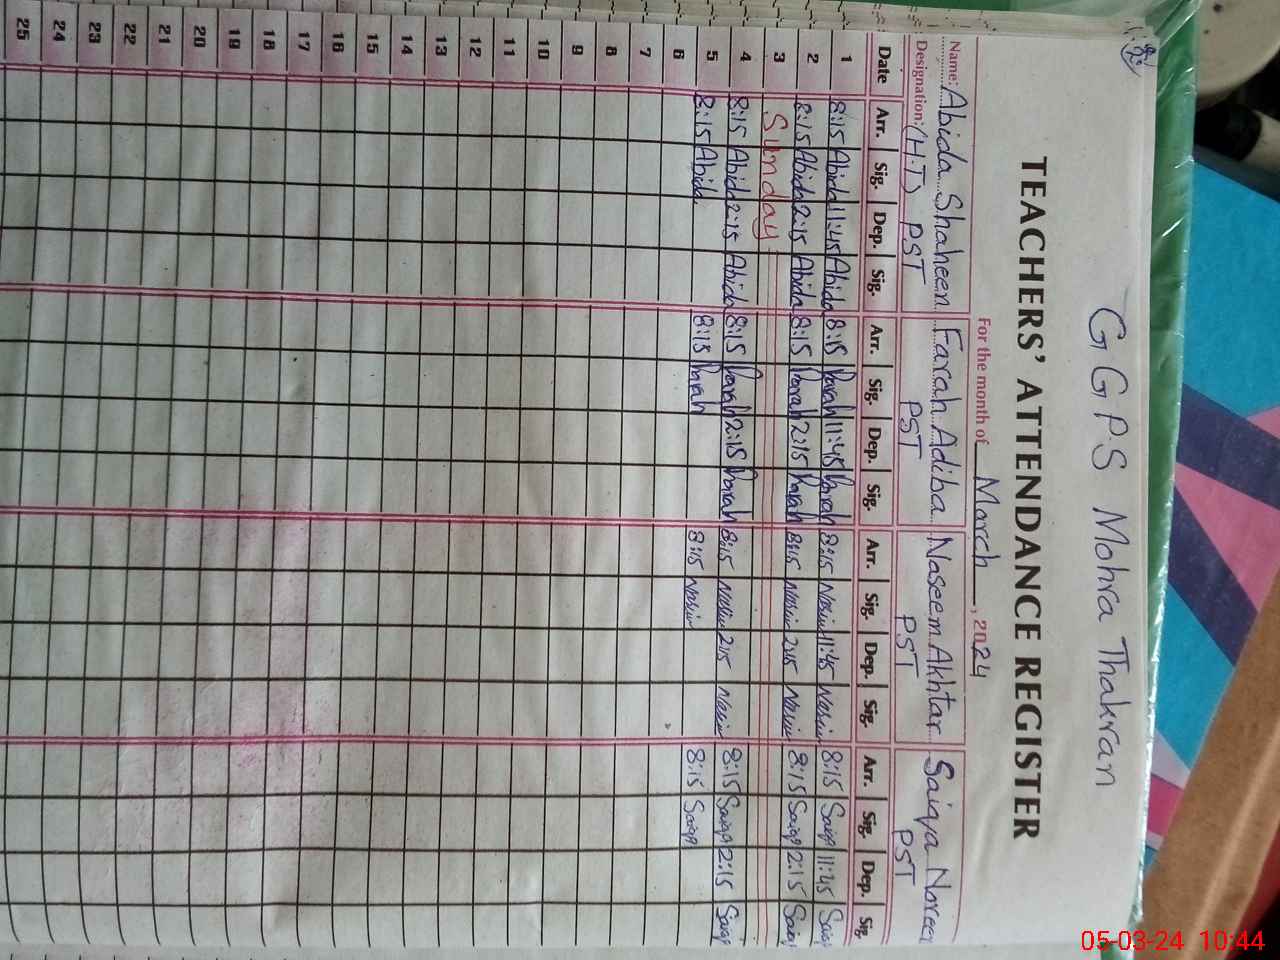 G G P S Mohra Thakran
TEACHERS' ATTENDANCE REGISTER
For the month of March, 2024
Name: Abida Shaheen Farah Adiba Naseem Akhtar Saiqa Noreen
Designation: (H.T) PST PST PST PST
Date Arr. Sig. Dep. Sig. Arr. Sig. Dep. Sig. Arr. Sig. Dep. Sig. Arr. Sig. Dep. Sig.
1 8:15 Abida 11:45 Abida 8:15 Farah 11:45 Farah 8:15 Nasim 11:45 Nasim 8:15 Saiqa 11:45 Saiqa
2 8:15 Abida 2:15 Abida 8:15 Farah 2:15 Farah 8:15 Nasim 2:15 Nasim 8:15 Saiqa 2:15 Saiqa
3 Sunday
4 8:15 Abida 2:15 Abida 8:15 Farah 2:15 Farah 8:15 Nasim 2:15 Nasim 8:15 Saiqa 2:15 Saiqa
5 8:15 Abida 8:15 Farah 8:15 Nasim 8:15 Saiqa
6
7
8
9
10
11
12
13
14
15
16
17
18
19
20
21
22
23
24
25
05-03-24 10:44